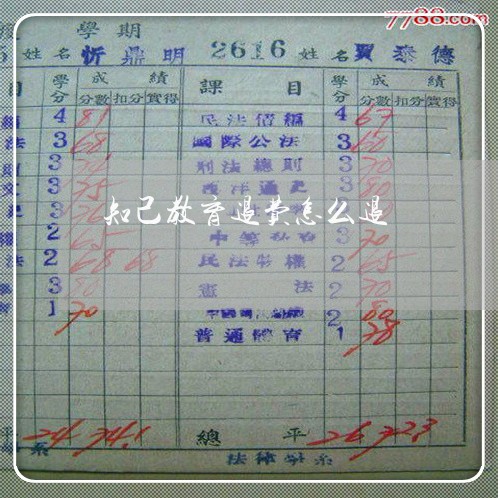 7788.com
學期
姓名 忻鼎明 2616 姓名 賈泰德
目 學分 成績 課目 學分 成績
分數 扣分 實得 分數 扣分 實得
4 81 民法債編 4 67
法 3 68 國際公法 3 60
3 刑法總則 3 70
文 3 75 西洋通史 3 80
3 3
權 2 65 3 70
法 2 68 68 民法物權 2 65
3 80 憲法 2 70
1 70 2 80
普通體育 1 78
平 24 74.1 總平 26 72.3
系 法律學系
知己教育退费怎么退